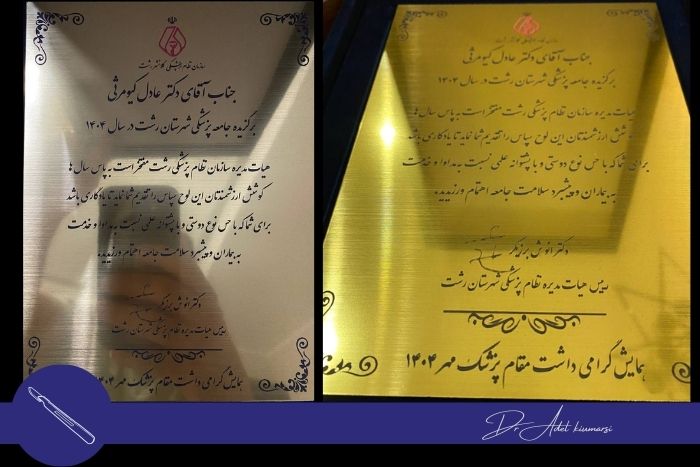 سازمان نظام پزشکی کلانشهر رشت
جناب آقای دکتر عادل کیومرثی
برگزیده جامعه پزشکی شهرستان رشت در سال ۱۴۰۴
هیات مدیره سازمان نظام پزشکی رشت مفتخر است به پاس سال ها
کوشش ارزشمندتان این لوح سپاس را تقدیم شما نماید تا یادگاری باشد
برای شما که با حس نوع دوستی و با پشتوانه علمی نسبت به مداوا و خدمت
به بیماران و پیشبرد سلامت جامعه اهتمام ورزیدید.
دکتر انوش برزیگر
رییس هیات مدیره نظام پزشکی شهرستان رشت
همایش گرامی داشت مقام پزشک مهر ۱۴۰۴
جناب آقای دکتر عادل کیومرثی
برگزیده جامعه پزشکی شهرستان رشت در سال ۱۴۰۴
هیات مدیره سازمان نظام پزشکی رشت مفتخر است به پاس سال ها
کوشش ارزشمندتان این لوح سپاس را تقدیم شما نماید تا یادگاری باشد
برای شما که با حس نوع دوستی و با پشتوانه علمی نسبت به مداوا و خدمت
به بیماران و پیشبرد سلامت جامعه اهتمام ورزیدید.
دکتر انوش برزیگر
رییس هیات مدیره نظام پزشکی شهرستان رشت
همایش گرامی داشت مقام پزشک مهر ۱۴۰۴
Dr Adel kiumarsi